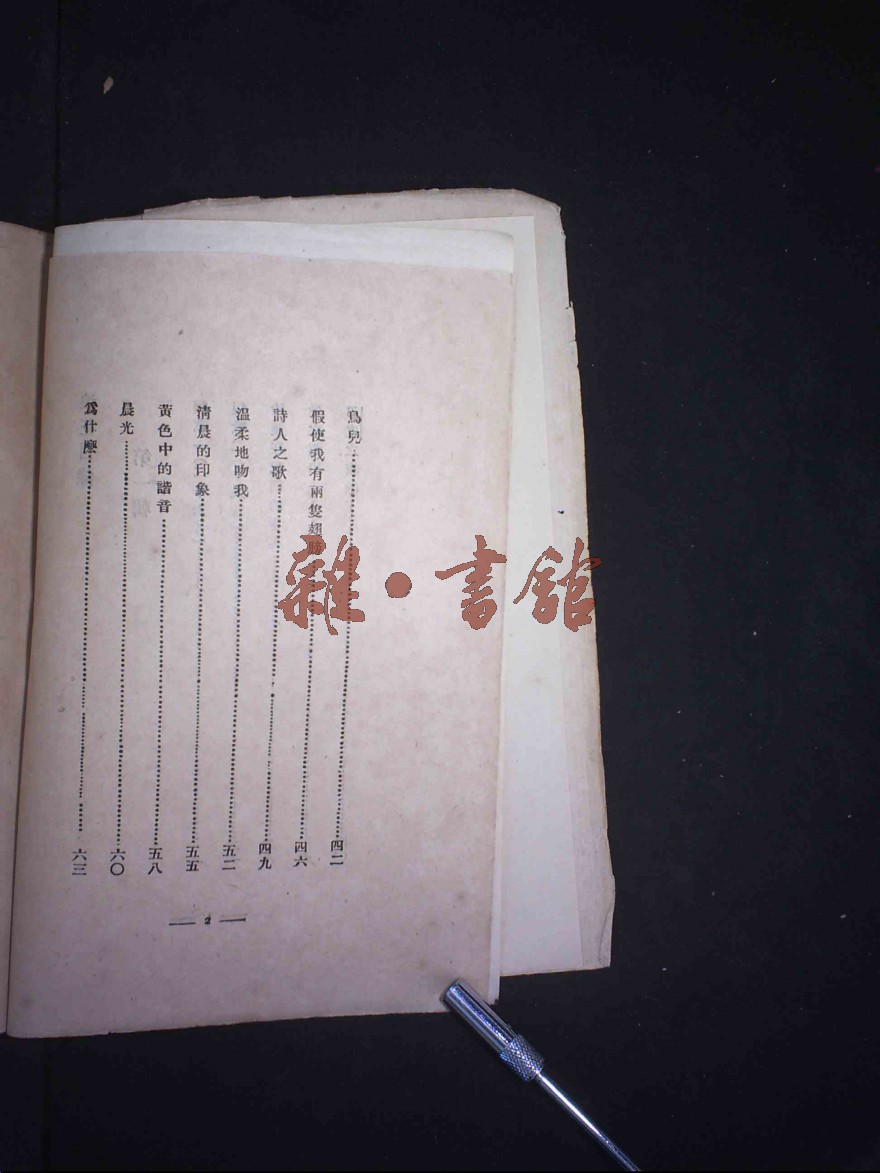 鳥兒……四二
假使我有兩隻翅膀……四六
詩人之歌……四九
溫柔地吻我……五二
清晨的印象……五五
黃色中的諧音……五八
晨光……六〇
爲什麼……六三
— 2 —
雜·書館